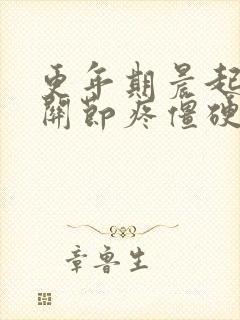 更年期晨起
關節疼僵硬
章魯生